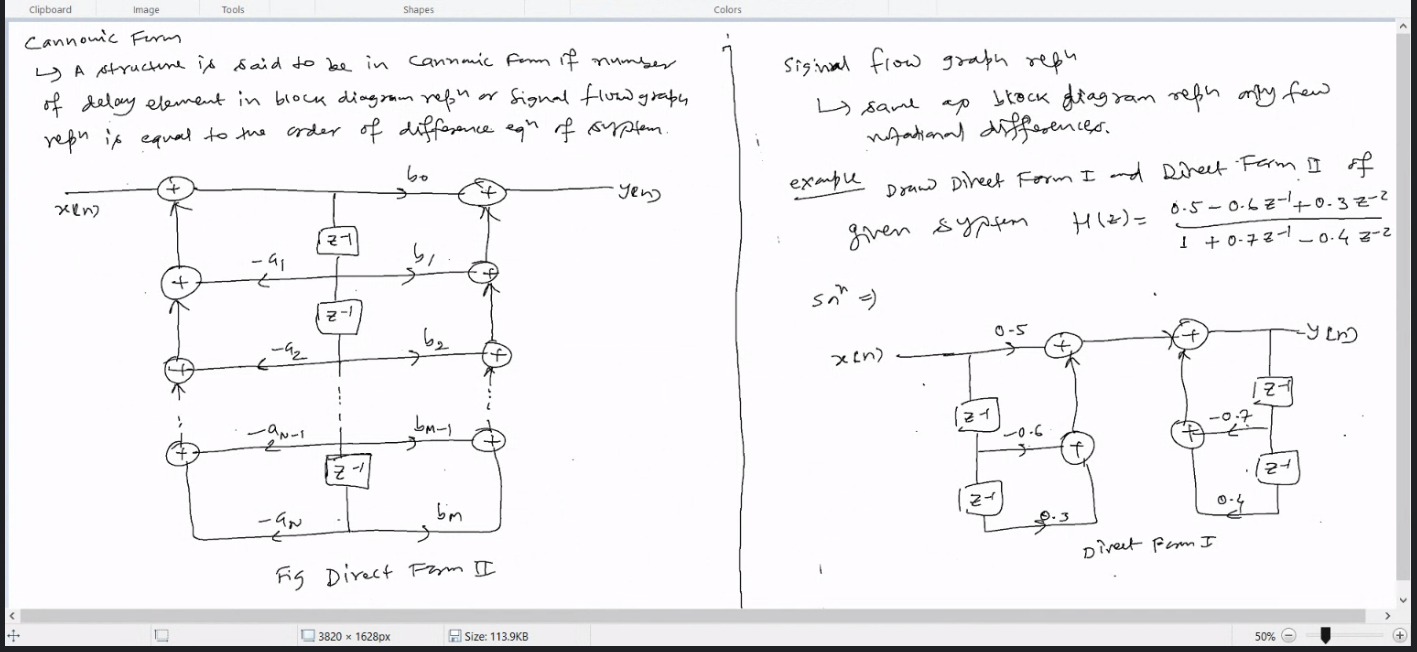 Clipboard
Image
Tools
Shapes
Colors
Cannonic Form
↳ A structure is said to be in cannonic form if number
of delay element in block diagram repn or signal flow graph
repn is equal to the order of difference eqn of system.
x(n)
+
b0
+
y(n)
z-1
-a1
b1
+
+
z-1
-a2
b2
+
+
-aN-1
bM-1
+
+
z-1
-aN
bM
Fig Direct Form II
Signal flow graph repn
↳ same as block diagram repn only few
notational differences.
example Draw Direct Form I and Direct Form II of
given system H(z) = 0.5 - 0.6 z-1 + 0.3 z-2
1 + 0.7 z-1 - 0.4 z-2
Son ⇒
x(n)
0.5
+
+
y(n)
z-1
z-1
-0.6
+
+
-0.7
z-1
z-1
0.3
0.4
Direct Form I
3820 × 1628px
Size: 113.9KB
50%